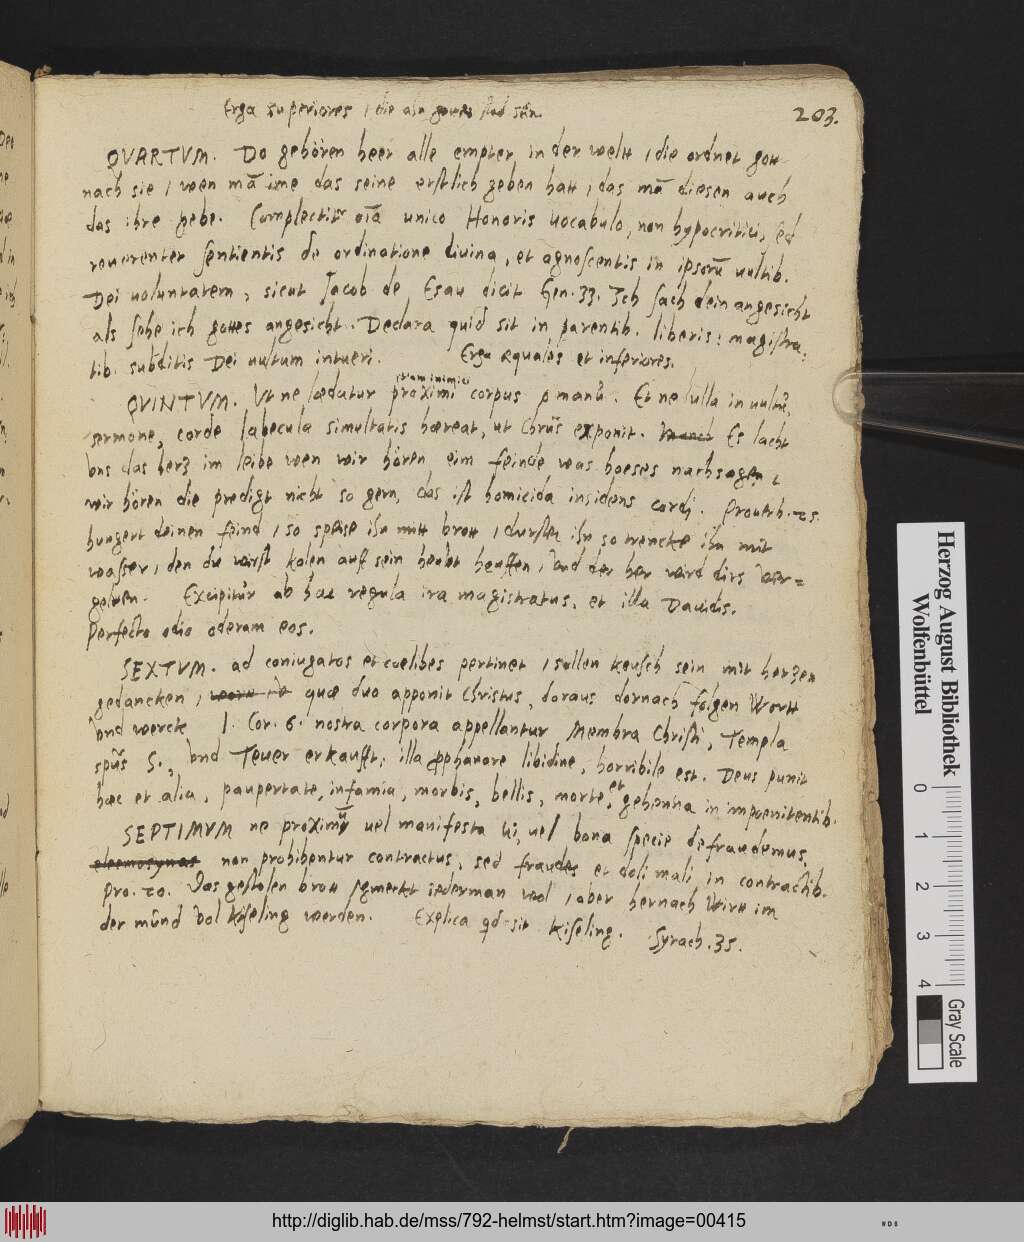 Erga superiores / die an gottes stad sein
203.
QVARTVM. Do gehören heer alle empter in der welt / die ordnet gott
nach sie / wen mā ime das seine erstlich geben hatt / das mā diesen auch
das ihre gebe. Complectit oīa unico Honoris vocabulo, non hypocritici, sed
reuerenter sentientis de ordinatione diuina, et agnoscentis in ipsorū uultib.
Dei uoluntatem, sicut Jacob de Esau dicit Gen. 33. Ich sach dein angesicht
als sehe ich gottes angesicht. Declara quid sit in parentib. liberis: magistra-
tib. subditis Dei uultum intueri. Erga æquales et inferiores.
etiam inimici
QVINTVM. Vt ne lædatur proximi corpus p manū. Et ne lulla in uultu,
sermone, corde labecula simultatis hæreat, ut Chrūs exponit. Es lacht
vns das herz im leibe wen wir hören eim feinde was boeses nachsagen,
wir hören die predigt nicht so gern, das ist homicida insidens cordi. Prouerb. 25.
hungert deinen feind / so speise ihn mitt brott / dursten ihn so trencke ihn mit
wasser / den du wirst kolen auff sein heubt heuffen / vnd der her wird dirs ver=
gelten. Excipitur ab hac regula ira magistratus, et illa Dauidis.
Perfecto odio oderam eos.
SEXTVM. ad coniugatos et cœlibes pertinet / sollen keusch sein mit herzen
gedancken / quæ duo apponit Christus, doraus dornach folgen Wortt
vnd wercke 1. Cor. 6. nostra corpora appellantur Membra Christi, Templa
spūs S., vnd Tewer erkaufft: illa pphanare libidine, horribile est. Deus punit
hæc et alia, paupertate, infamia, morbis, bellis, morte, et gehenna in impœnitentib.
SEPTIMVM ne proximū uel manifesta ui, uel bona specie defraudemus,
eleemosynas non prohibentur contractus, sed fraudes et doli mali in contractib.
Pro. 20. Das gestolen brott schmeckt iederman wol / aber hernach Wirtt im
der mund vol kiseling werden. Explica qd sit kiseling. Syrach. 35.
Herzog August Bibliothek
Wolfenbüttel
0 1 2 3 4
Gray Scale
http://diglib.hab.de/mss/792-helmst/start.htm?image=00415
WDB